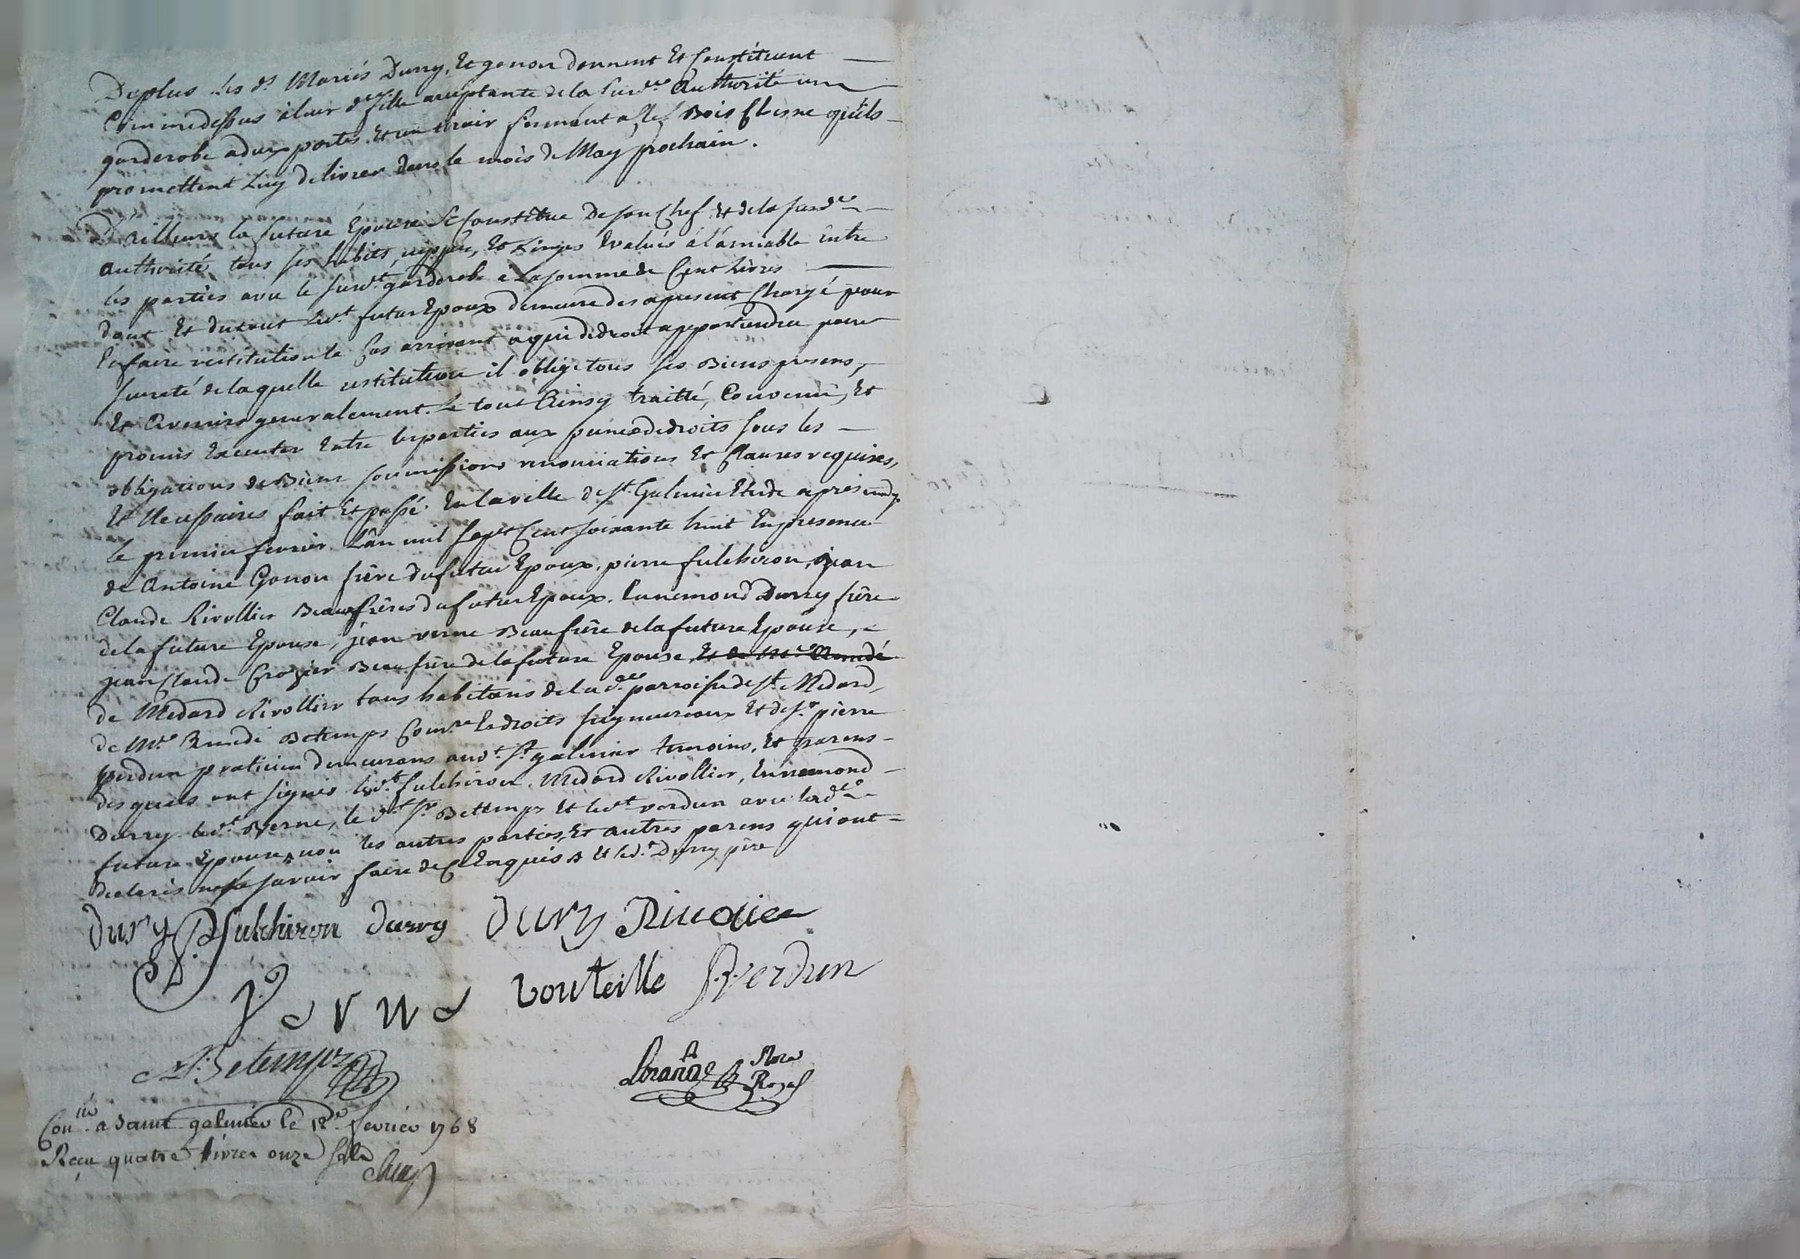 Deplus les dt Mariés Durry, Et gonon donnent Et Constituent
Comme dessus à leur de fille acceptante de la susde Authorité un
garderobe a deux portes Et un tiroir fermant a clef Bois Chesne quils
promettent Luy delivrer dans le mois de May prochain.
D'ailleurs la future Epouse Se Constitue De son Chef Et de la susde
authorité, tous ses habits, nippes, Et Linges Evalués à l'amiable Entre
les parties avec le susdt garderobe a La somme de Cent Livres
dont Et du tout Ledt futur Epoux demeure des apresent Chargé pour
En faire restitution le Cas arrivant a qui de droit appartiendra pour
sureté de laquelle restitution il oblige tous ses Biens presens,
Et Avenirs generalement. Le tout Ainsy traitté, Convenu, Et
promis Executer Entre les parties aux peines de droits sous les
obligations de Biens soumissions renonciations Et Clauses requises,
Et Necessaires fait Et passé En la ville de St Galmier Etude apres midy
le premier fevrier L'an mil sept Cent soixante huit En presence
de Antoine Gonon frère du futur Epoux, pierre fulchiron, jean
Claude Rivollier Beaufrères du futur Epoux, Ennemond Durry frère
de la future Epouse, jean verne Beaufrère de la future Epouse,
jean Claude Crozier Beaufrère de la future Epouse, Et de Mre Amedé
de Medard Rivollier tous habitans de lade parroisse de St Medard,
de Mre Amedé Betemps Comre Es droits seigneuriaux Et de Sr pierre
verdun praticien demeurans audt St galmier temoins, Et parens
desquels ont signés ledt fulchiron, Medard Rivollier, Ennemond
Durry ledt Verne, le dt Sr Betemps Et ledt verdun avec lade
future Epouse, non les autres parties, Et autres parens qui ont
declarés ne le savoir faire de Ce Enquis Et ledt Durry père
Durry Fulchiron durry Durry Rivolier
J verne vouteille P. Verdun
A. Betemps
Nore Royal
Conlé a saint galmier le 12e fevrier 1768
Recu quatre livres onze sols